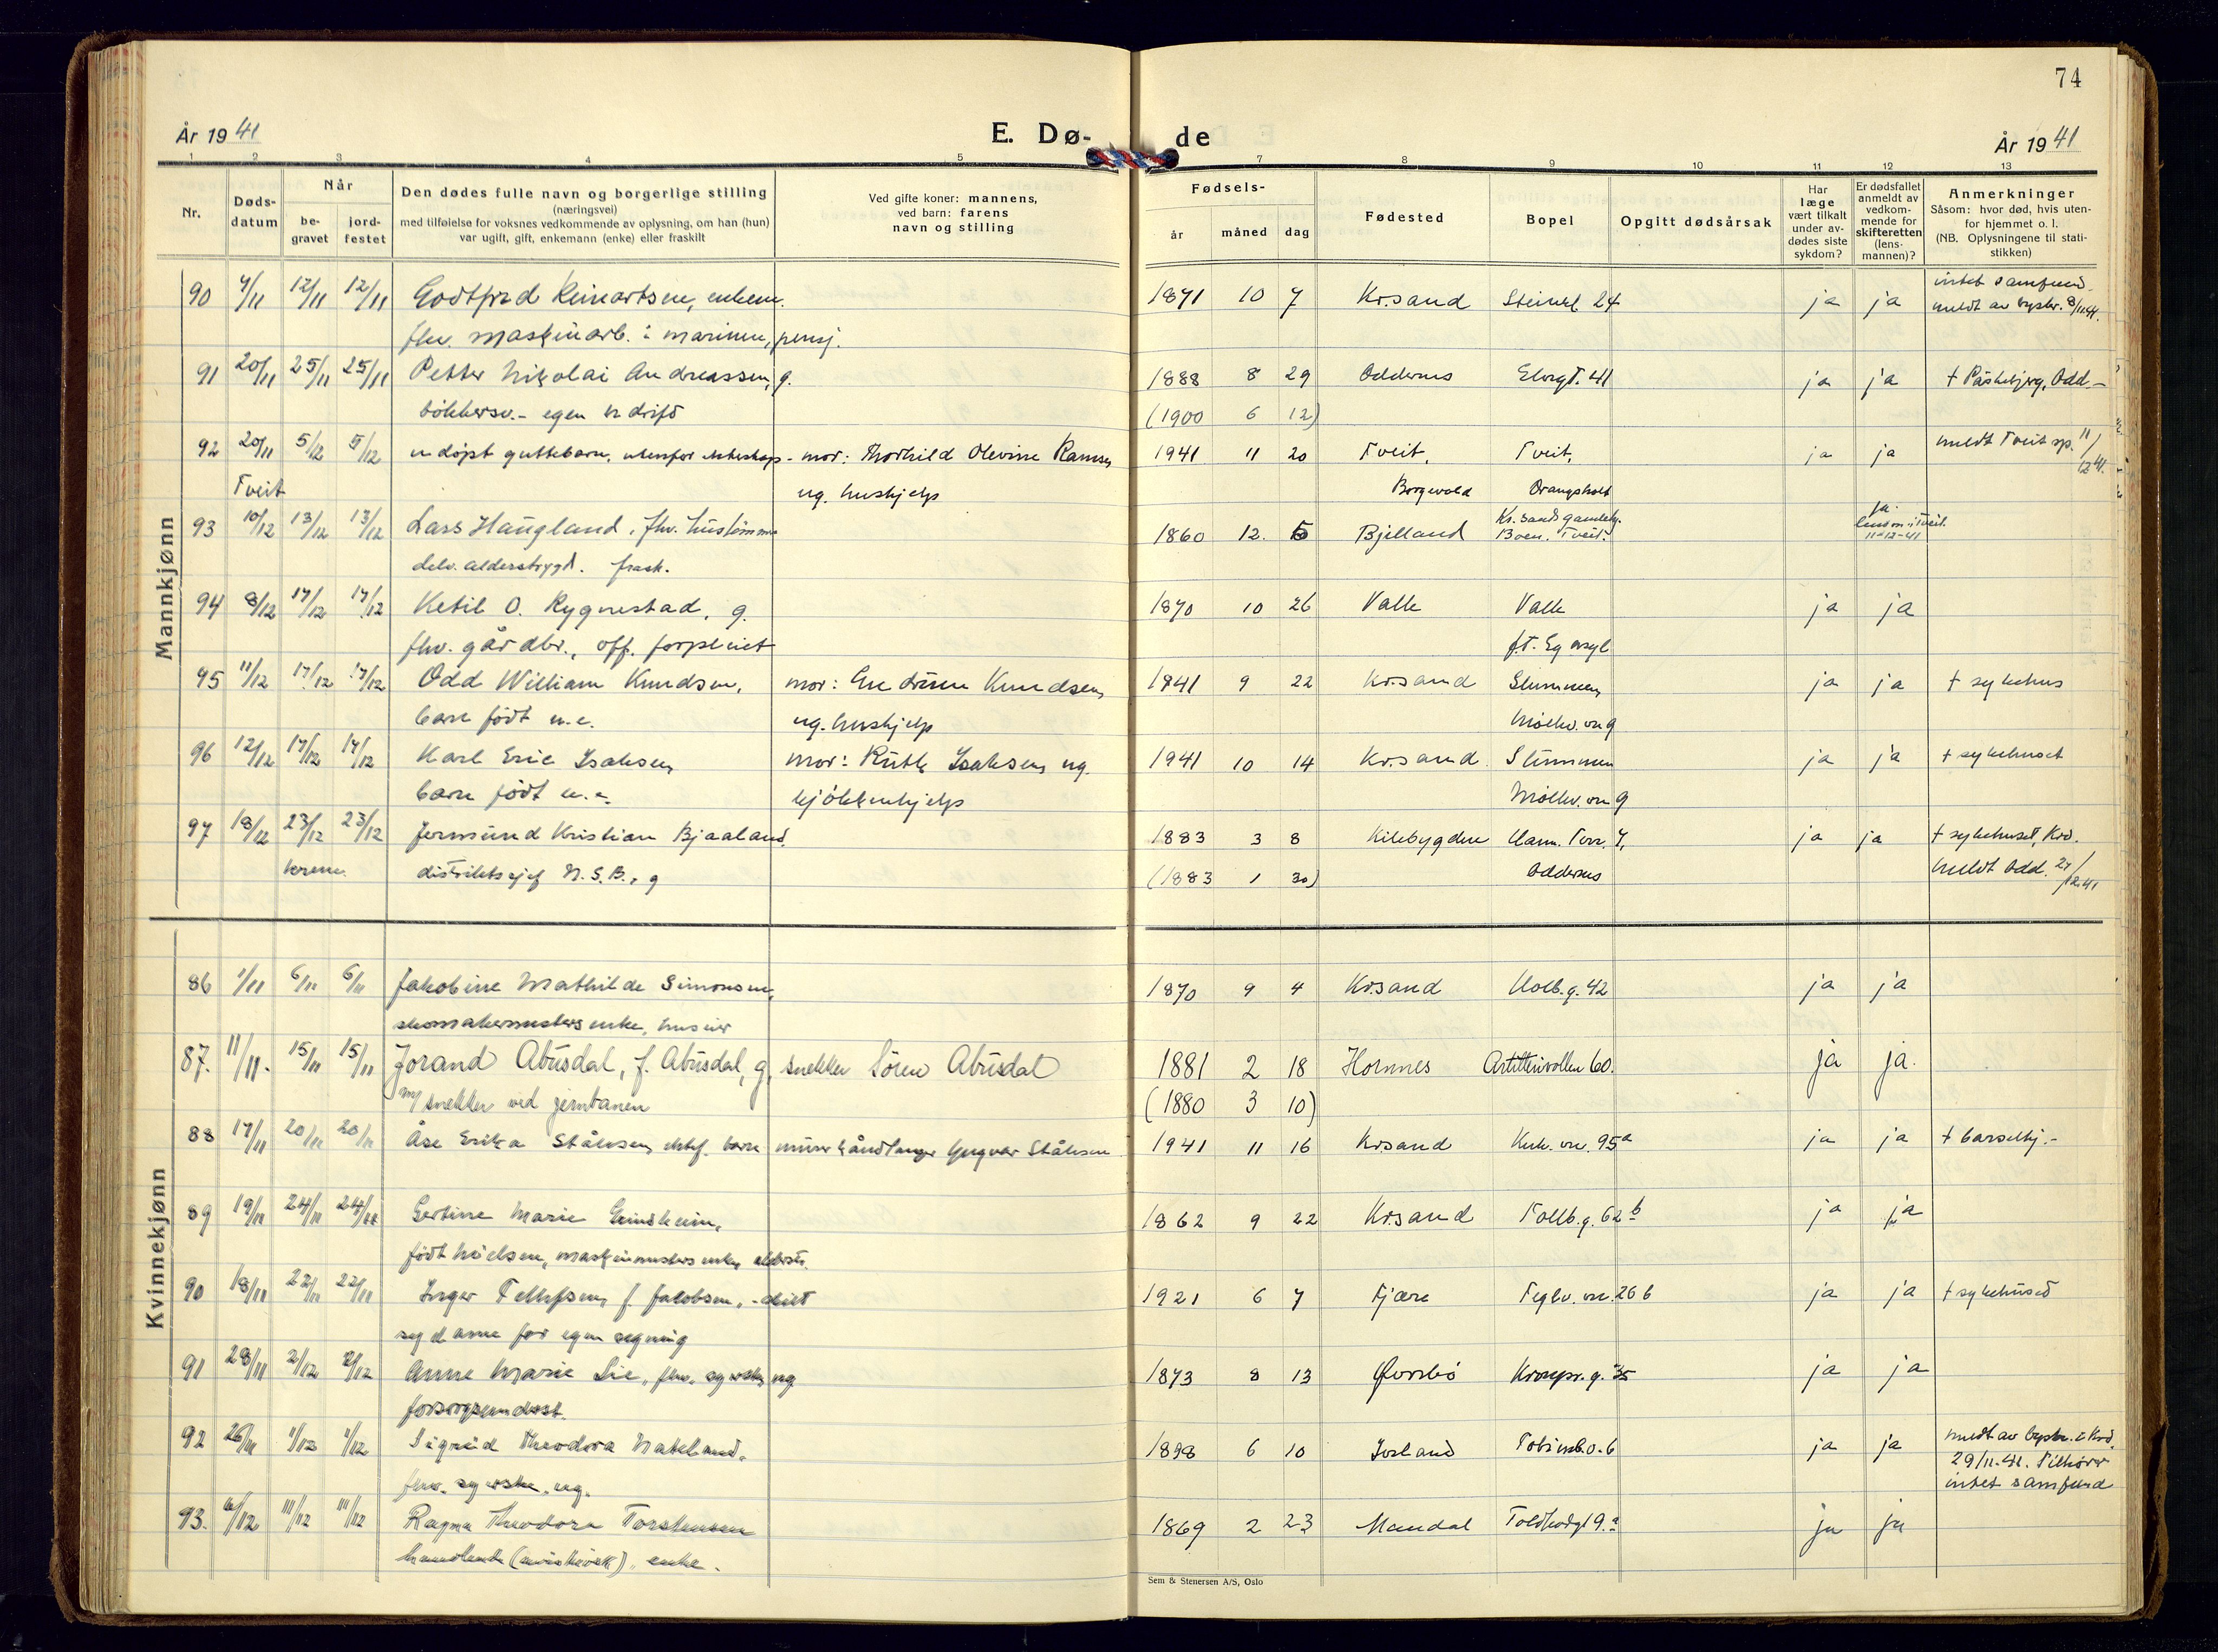 74
År 1941
E. Dø-
de
År 1941
1 2 3 4 5 7 8 9 10 11 12 13
Nr.
Døds-
datum
Når
be-
gravet
jord-
festet
Den dødes fulle navn og borgerlige stilling
(næringsvei)
med tilføielse for voksnes vedkommende av oplysning, om han (hun)
var ugift, gift, enkemann (enke) eller fraskilt
Ved gifte koner: mannens,
ved barn: farens
navn og stilling
Fødsels-
år måned dag
Fødested
Bopel
Opgitt dødsårsak
Har
læge
vært tilkalt
under av-
dødes siste
sykdom?
Er dødsfallet
anmeldt av
vedkom-
mende for
skifteretten
(lens-
mannen)?
Anmerkninger
Såsom: hvor død, hvis uten-
for hjemmet o. l.
(NB. Oplysningene til stati-
stikken)
Mannkjønn
90 7/11 12/11 12/11 Godtfred Reinertsen, enkem. 1871 10 7 Kr.sand Steinkl. 24 ja ja intet samfund
meldt av byskr. 8/11.41.
fhv. maskinarb. i marinen, pensj.
91 20/11 25/11 25/11 Petter Nikolai Andreassen, g. 1888 8 29 Oddernes Elvegt. 41 ja ja † Påskebjerg, Odd.-
bökkersv. - egen bedrift (1900 6 12)
92 20/11 5/12 5/12 udøpt guttebarn, utenfor ekteskap - mor: Thorhild Olevine Ramsey 1941 11 20 Tveit, Tveit, ja ja meldt Tveit sp. 11/12 41.
Tveit ug. hushjelp Borgevold Drangsholt
93 10/12 13/12 13/12 Lars Haugland, fhv. hustömmer 1860 12. 5 Bjelland Kr.sands gamlehj.
Boen. Tveit. ja.
lensm. i Tveit.
11-12-41
delv. alderstrygd. frask.
94 8/12 17/12 17/12 Ketil O. Rygnestad, g. 1870 10 26 Valle Valle ja ja
fhv. gårdbr., off. forpleiet f.t. Eg asyl
95 11/12 17/12 17/12 Odd William Knudsen, mor: Gudrun Knudsen, 1941 9 22 Kr.sand Stemmen, ja ja † sykehus
barn født u.e. ug. hushjelp Möllev. vn 9
96 12/12 17/12 17/12 Karl Eric Isaksen mor: Ruth Isaksen, ug. 1941 10 14 Kr.sand Stemmen ja ja † sykehuset
barn født u.e. kjökkenhjelp Möllev. vn 9
97 18/12 23/12 23/12 Jermund Kristian Bjaaland, 1883 3 8 Kilebygden Hann. Terr. 7, ja ja † sykehuset, Krs.
krem. distriktssjef N.S.B., g (1883 1 30) Oddernes meldt Odd. 27/12.41
Kvinnekjønn
86 1/11 6/11 6/11 Jakobine Mathilde Simonsen, 1870 9 4 Kr.sand Holb.g. 42 ja ja
skomakermesters enke, huseier
87. 11/11. 15/11 15/11 Jorand Abusdal, f. Abusdal, g. snekker Sören Abusdal 1881 2 18 Hornnes Artillerivollen 60. ja ja.
m/ snekker ved jernbanen (1880 3 10)
88 17/11 20/11 20/11 Åse Erika Stålesen, ektef. barn murerhåndlanger Yngvar Stålesen 1941 11 16 Kr.sand Kirk. vn. 95a ja ja † barselhj.-
89 19/11 24/11 24/11 Gertine Marie Grimsheim, 1862 9 22 Kr.sand Tollb.g. 62b ja ja
født Nielsen, maskinmesters enke, alderstr.
90 18/11 22/11 22/11 Inger Tellefsen, f. Jakobsen, - skilt 1921 6 7 Fjære Teglv. vn. 26b ja ja † sykehuset
sydame for egen regning
91 28/11 2/12 2/12 Anne Marie Lie, fhv. syerske, ug. 1873 8 13 Øvrebö Kronpr.g. 35 ja ja
forsorgsunderst.
92 26/11 1/12 1/12 Sigrid Theodora Nateland, 1898 6 10 Iveland Tobinsb. o. 6 ja ja meldt av byskr. i Krs.
29/11.41. Tilhörer
intet samfund
fhv. syerske, ug.
93. 6/12 11/12 11/12 Ragna Theodora Torstensen 1869 2 23 Mandal Toldbodgt 9.a ja ja
handlende, enke.
Sem & Stenersen A/S, Oslo